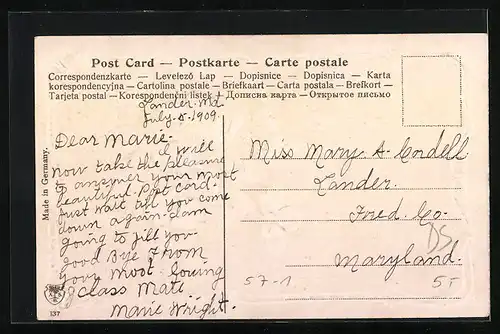 Post Card — Postkarte — Carte postale
Correspondenzkarte — Levelező Lap — Dopisnice — Dopisnica — Karta
korespondencyjna — Cartolina postale — Briefkaart — Carta postala — Brefkort —
Tarjeta postal — Korespondenční listek + Дописна карта — Открытое письмо
Lander. Md.
July-5-1909.
Dear Marie-
I will
now take the pleasing
to answer your most
beautiful Post card.
Just wait till you come
down again. I am
going to fill you
Good Bye From
your most loving
Class Mate
Marie Wright.
Made in Germany.
137
Miss Mary A Cordell
Lander.
Fred. Co.
Maryland.
57-1
DS
5T